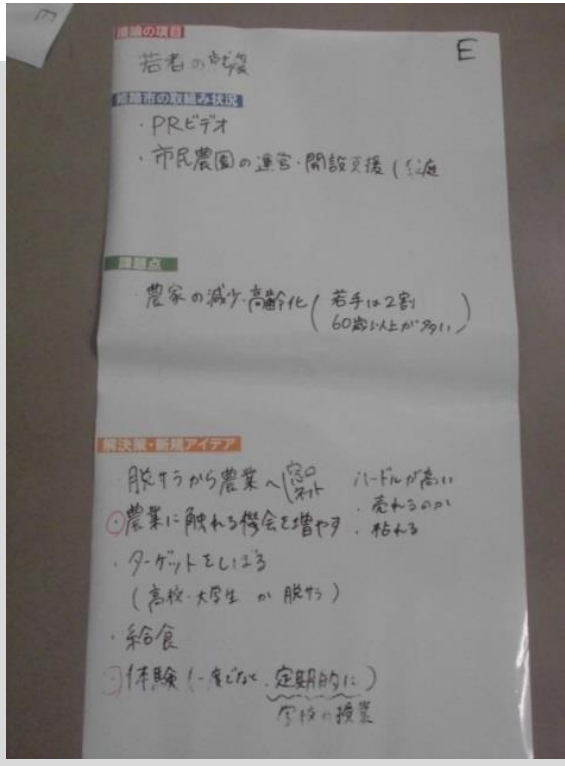 E
議論の項目
若者の就農
姫路市の取組み状況
・PRビデオ
・市民農園の運営・開設支援(
課題点
・農家の減少・高齢化(若手は2割
60歳以上が多い)
解決策・新規アイデア
・脱サラから農業へ(窓口 ネット ハードルが高い
・農業に触れる機会を増やす ・売れるのか
・枯れる
・ターゲットをしぼる
(高校・大学生 か 脱サラ)
・給食
・体験(一度でなく、定期的に)
学校の授業